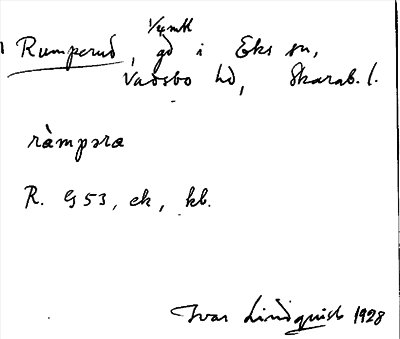 1/4 mtl
Rumperud, gd i Eks sn,
Vadsbo hd, Skarab. l.
ràmpəra
R. G 53, ek, kb.
Ivar Lindquist 1928